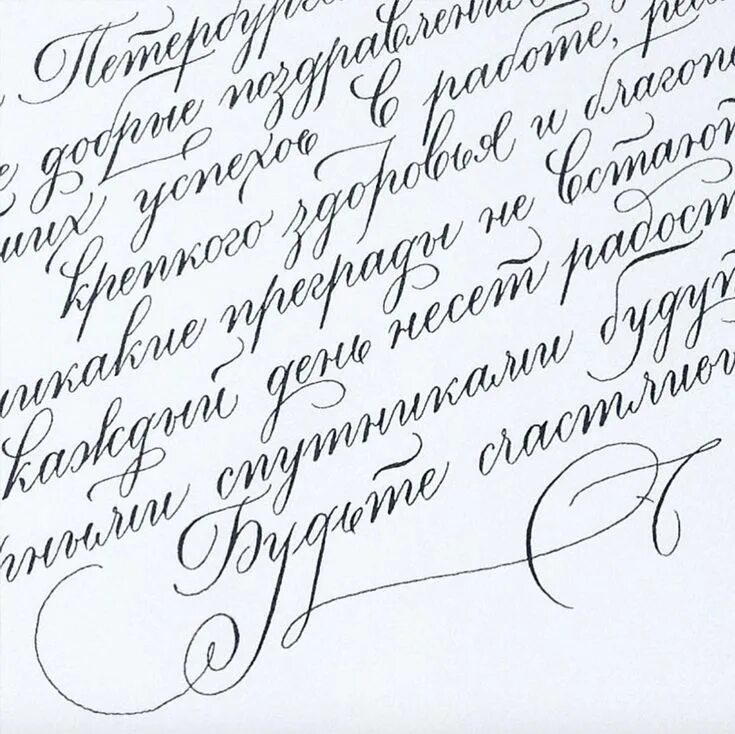 Петербур
е добрые поздравлени
ших успехов в работе, ре
крепкого здоровья и благоп
никакие преграды не встают
каждый день несет радост
чными спутниками будут
Будьте счастливы